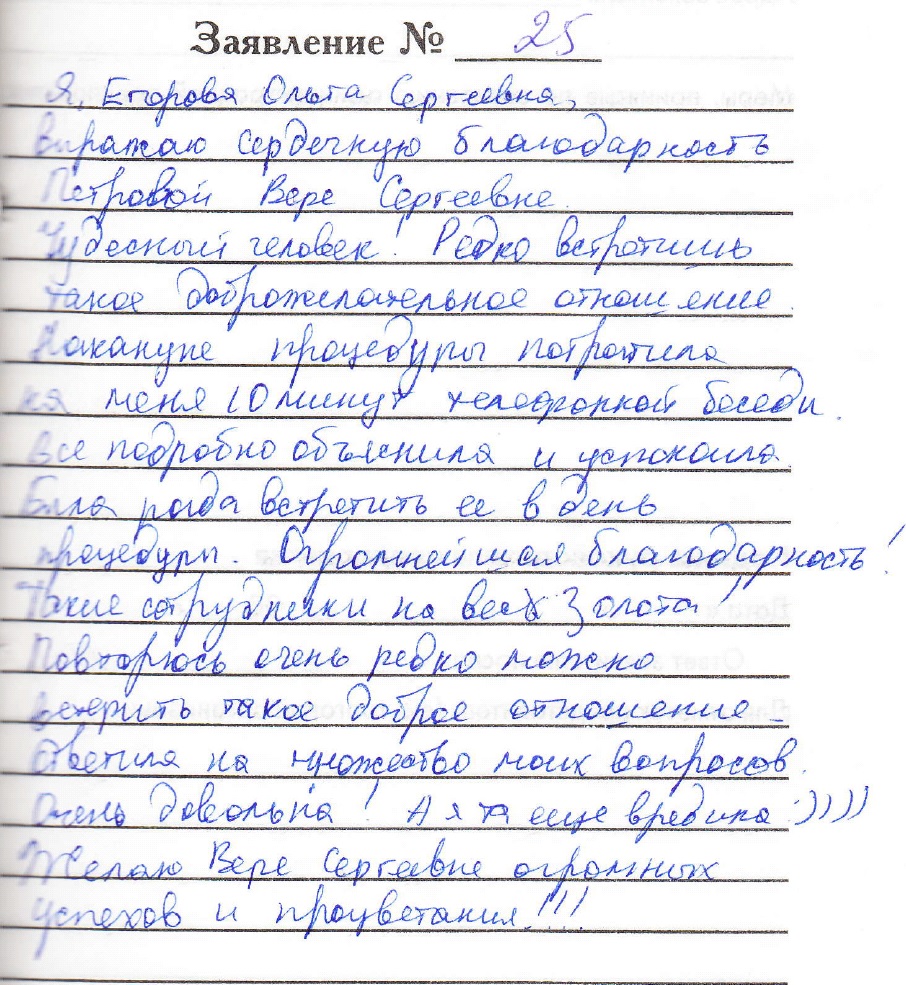 Заявление № 25
Я, Егорова Ольга Сергеевна,
выражаю сердечную благодарность
Петровой Вере Сергеевне.
Чудесный человек! Редко встретишь
такое доброжелательное отношение.
Накануне процедуры потратила
на меня 10 минут телефонной беседы.
Все подробно объяснила и успокоила.
Была рада встретить ее в день
процедуры. Огромнейшая благодарность!
Такие сотрудники на вес золота!
Повторюсь очень редко можно
встерить такое доброе отношение
Ответила на множество моих вопросов.
Очень довольна! А я та еще вредина :))))
Желаю Вере Сергеевне огромных
успехов и процветания!!!